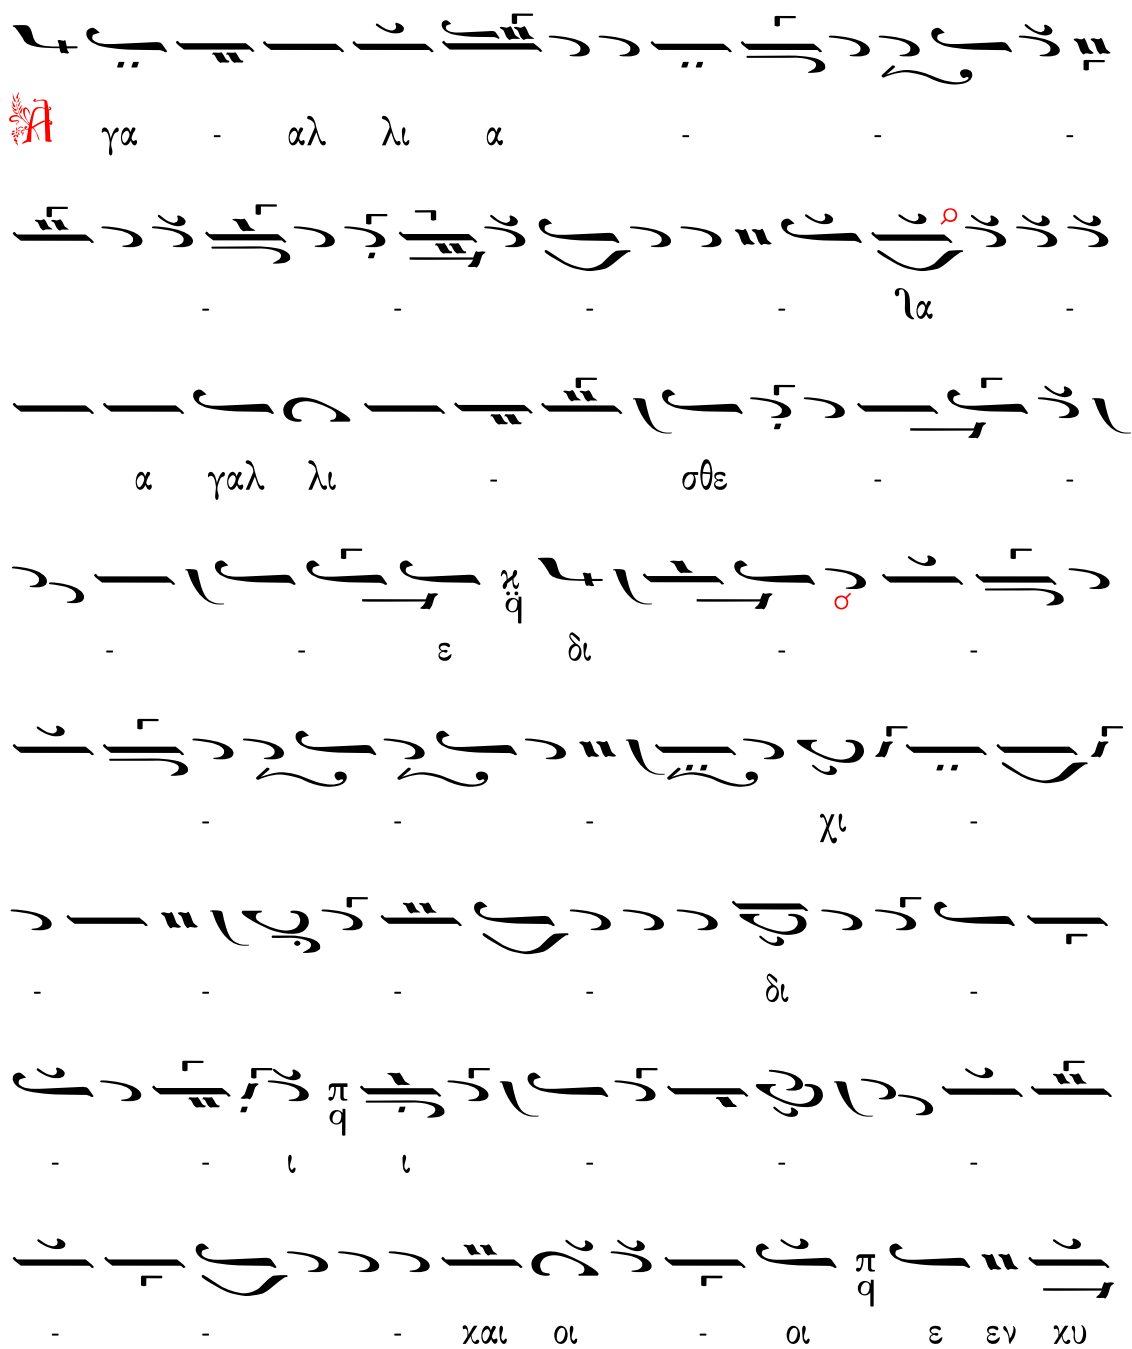 Α γα - αλ λι α - - -
- - - - σθα -
α γαλ λι - σθε - -
- - ε δι - -
- - - χι -
- - - - δι -
- - ι ι - - -
- - - και οι - οι ε εν κυ